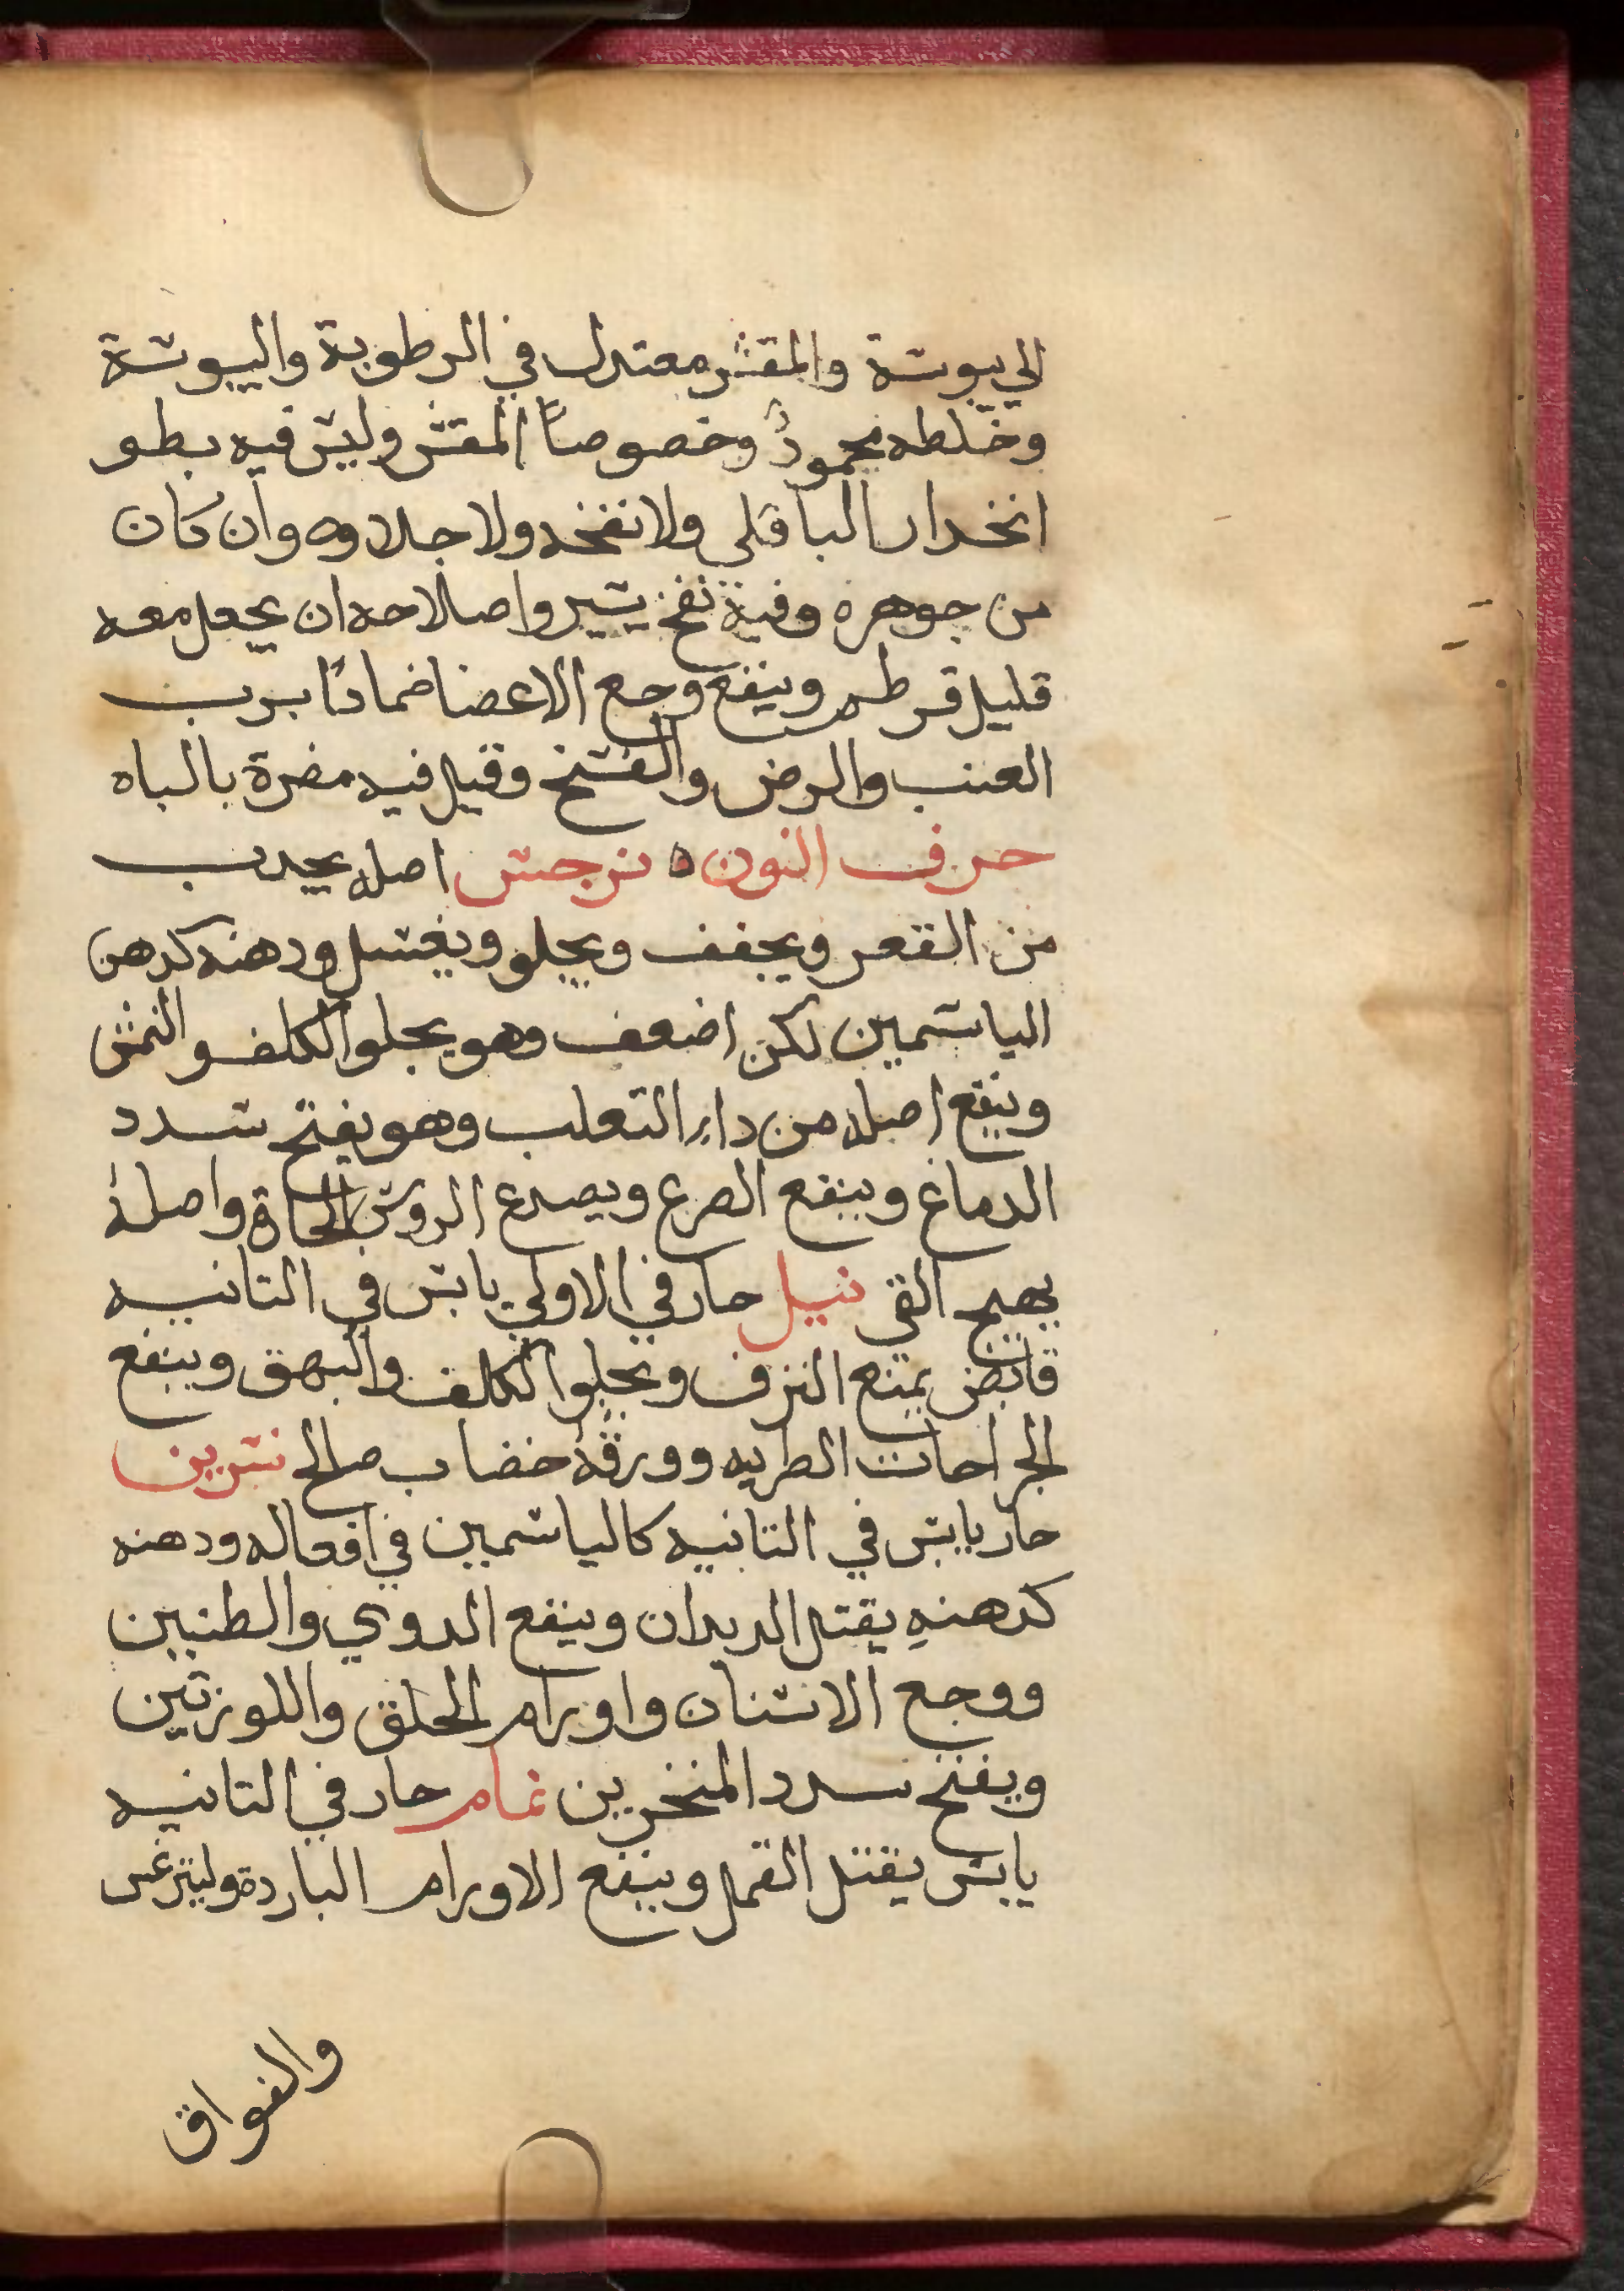 الي يبوسة والمقشر معتدل في الرطوبة واليبوسة
وخلطه محمودٌ وخصوصاً المقشر وليس فيه بطو
انحدار الباقلي ولا نفخه ولا جلاوه وان كان
من جوهره وفية نفخ يسير واصلاحه ان يجعل معه
قليل قرطم وينفع وجع الاعضا ضماداً برب
العنب والرض والفسخ وقيل فيه مضرة بالباه
حرف النون ه نرجس اصله يجدب
من القعر ويجفف ويجلو ويغسل ودهنه كدهن
الياسمين لكن اضعف وهو يجلوا الكلف والنمش
وينفع اصله من داء التعلب وهو يفتح سدد
الدماغ وينفع الصرع ويصدع الروس الحاة واصلهُ
يهيج القي نيل حار في الاولي يابس في التانيه
قابض يمنع النزف ويجلوا الكلف والبهق وينفع
الجراحات الطريه وورقهُ خضاب صالح نسرين
حار يابس في التانيه كالياسمين في افعاله ودهنه
كدهنهِ يقتل الديدان وينفع الدوي والطنين
ووجع الاسنان واورام الحلق واللوزتين
ويفتح سدد المنخرين نمام حار في التانيه
يابس يقتل القمل وينفع الاورام الباردة وليترغس
والفواق